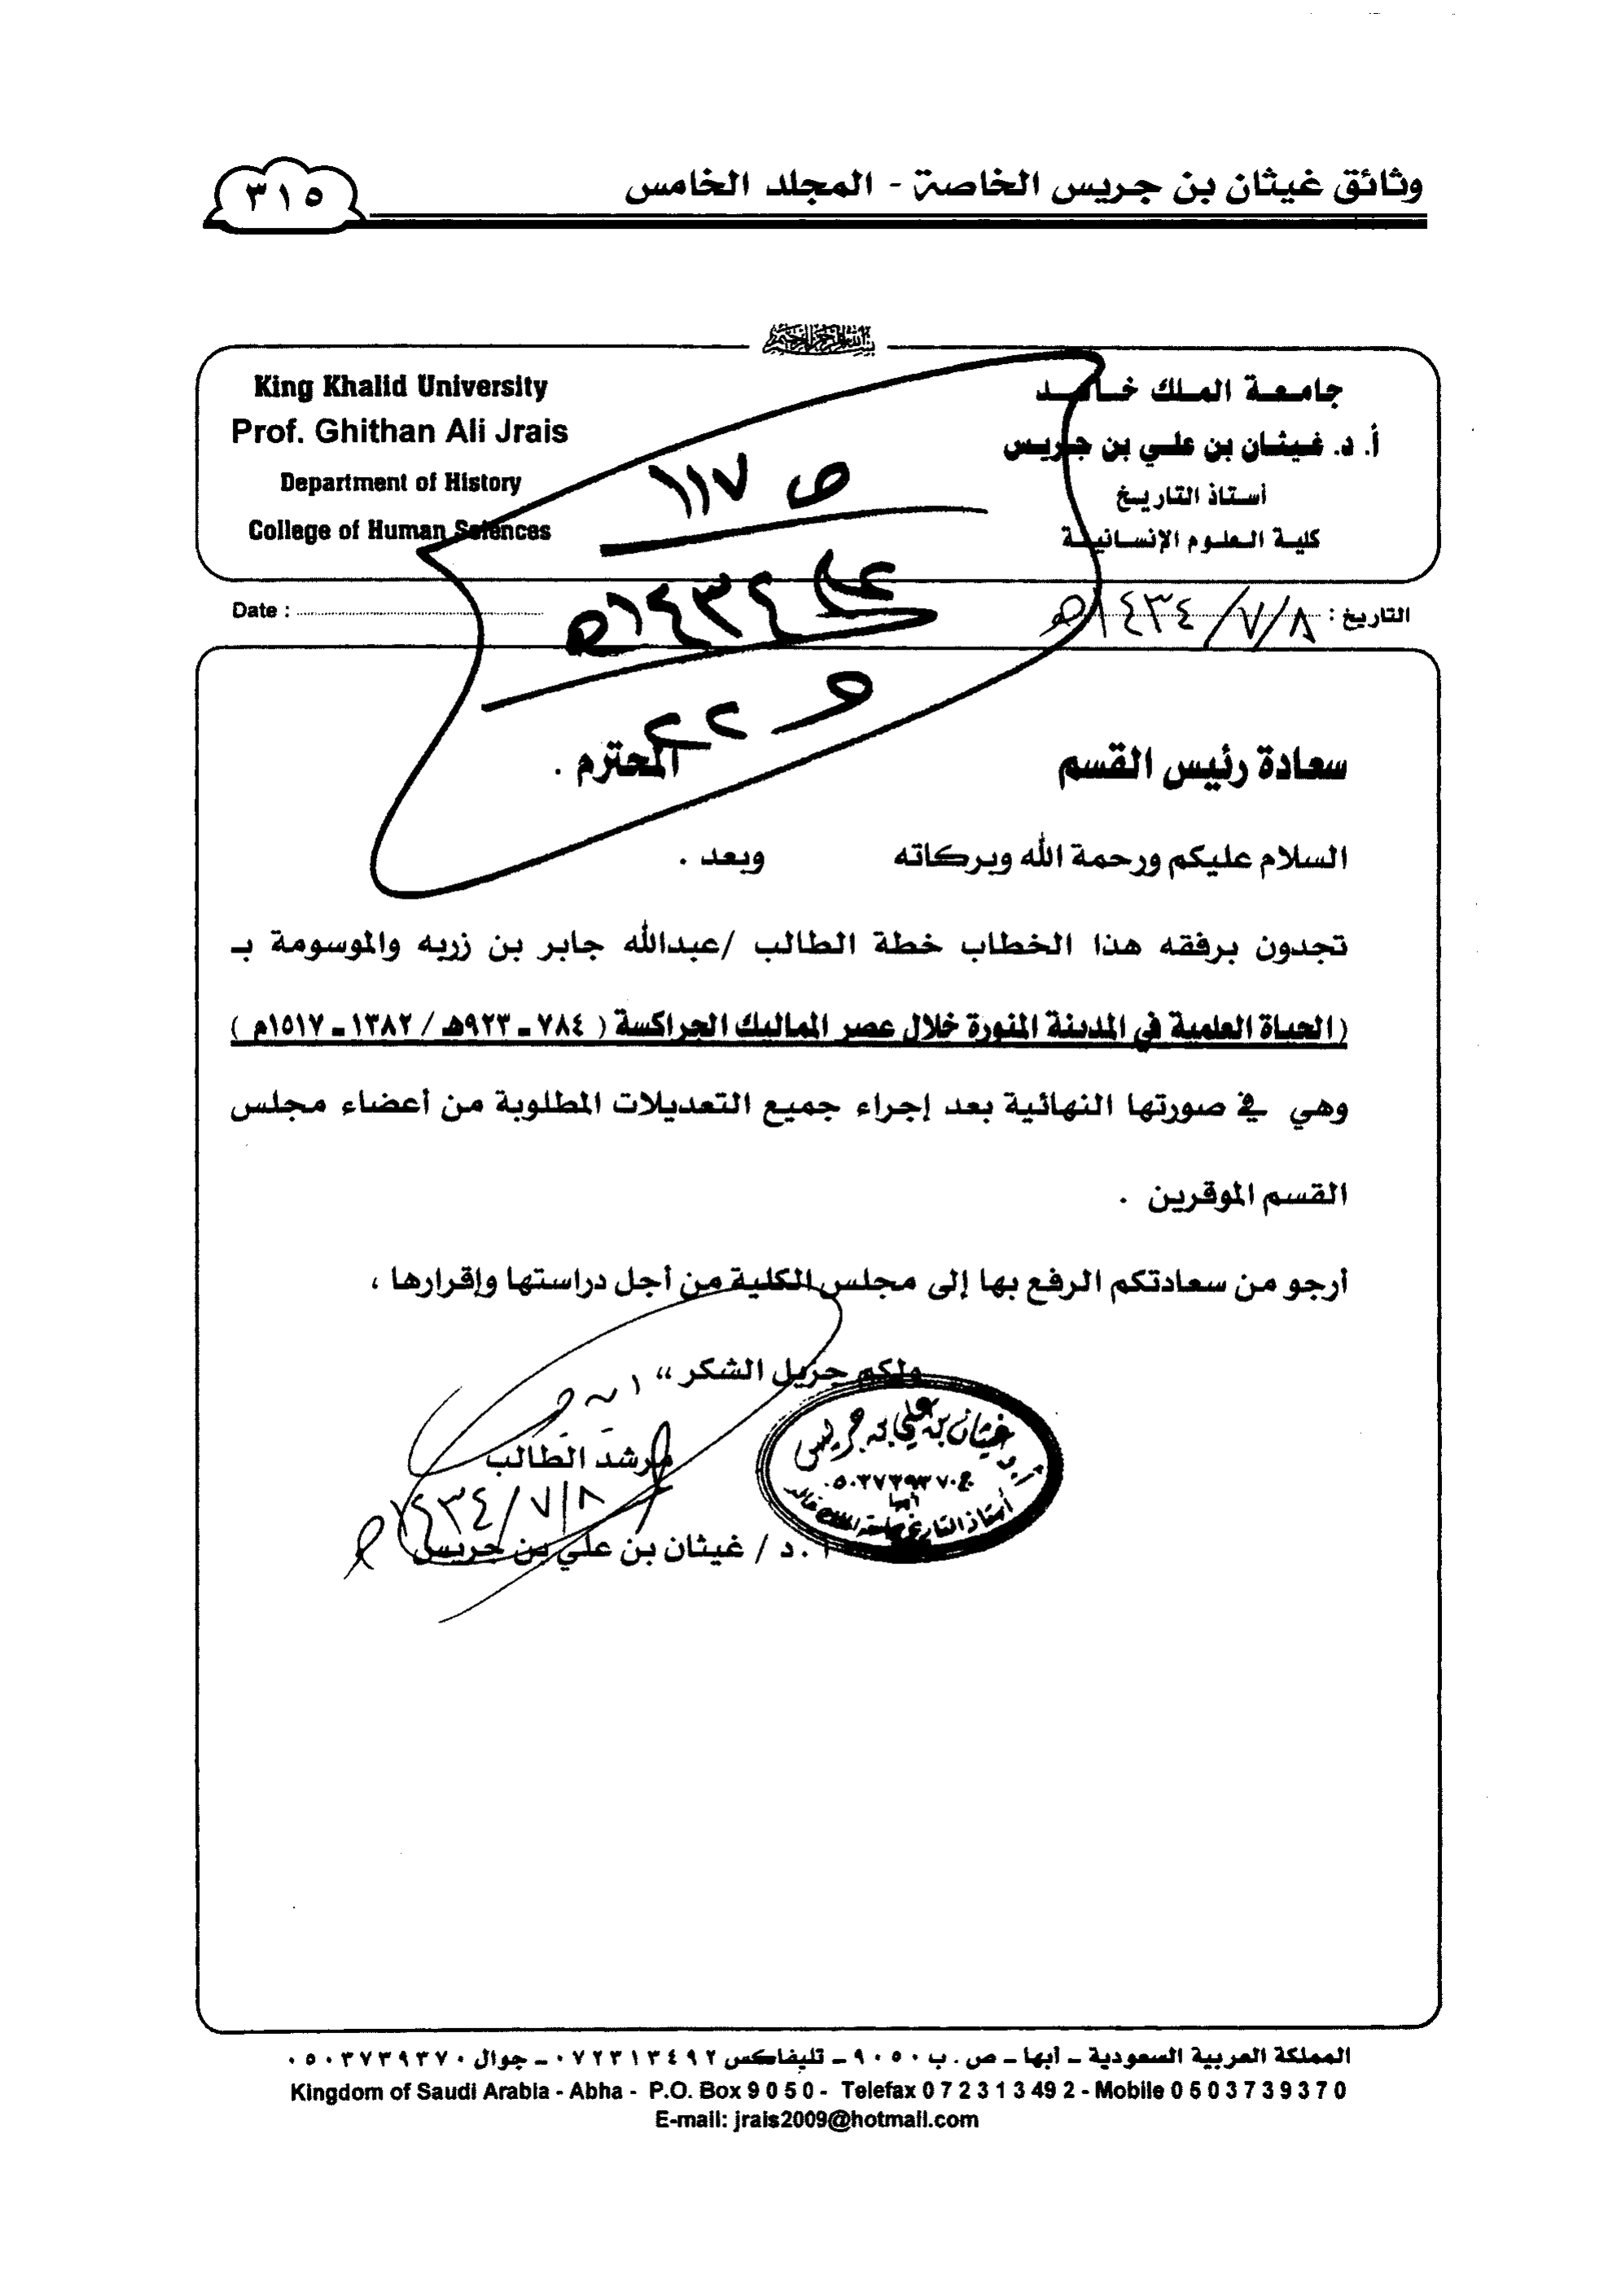 وثائق غيثان بن جريس الخاصة - المجلد الخامس
٣١٥
بسم الله الرحمن الرحيم
جامعة الملك خالد
أ. د. غيثان بن علي بن جريس
أستاذ التاريخ
كلية العلوم الإنسانية
King Khalid University
Prof. Ghithan Ali Jrais
Department of History
College of Human Sciences
ص ١١٧
١٤٣٤هـ
التاريخ : ٨/٧/١٤٣٤هـ
Date :
سعادة رئيس القسم المحترم .
السلام عليكم ورحمة الله وبركاته وبعد .
تجدون برفقه هذا الخطاب خطة الطالب /عبدالله جابر بن زربه والموسومة بـ
( الحياة العلمية في المدينة المنورة خلال عصر المماليك الجراكسة ( ٧٨٤ - ٩٢٣هـ / ١٣٨٢ - ١٥١٧م )
وهي في صورتها النهائية بعد إجراء جميع التعديلات المطلوبة من أعضاء مجلس
القسم الموقرين .
أرجو من سعادتكم الرفع بها إلى مجلس الكلية من أجل دراستها وإقرارها ،
ولكم جزيل الشكر ،،
مرشد الطالب
٨/٧/١٤٣٤هـ
أ.د / غيثان بن علي بن جريس
أ.د غيثان بن علي بن جريس
ج ٠٥٠٣٧٣٩٣٧٠
أبها
أستاذ التاريخ بجامعة الملك خالد
المملكة العربية السعودية - أبها - ص . ب ٩٠٥٠ - تليفاكس ٠٧٢٣١٣٤٩٢ - جوال ٠٥٠٣٧٣٩٣٧٠
Kingdom of Saudi Arabia - Abha - P.O. Box 9 0 5 0 - Telefax 0 7 2 3 1 3 49 2 - Mobile 0 5 0 3 7 3 9 3 7 0
E-mail: jrais2009@hotmail.com